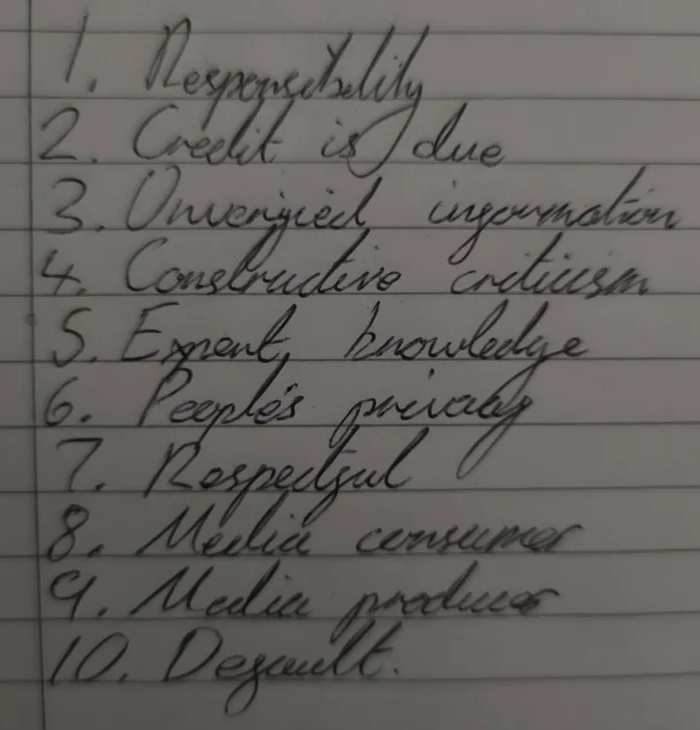 1. Responsibility
2. Credit is due
3. Unverified information
4. Constructive criticism
5. Expert knowledge
6. People's privacy
7. Respectful
8. Media consumer
9. Media producer
10. Default.